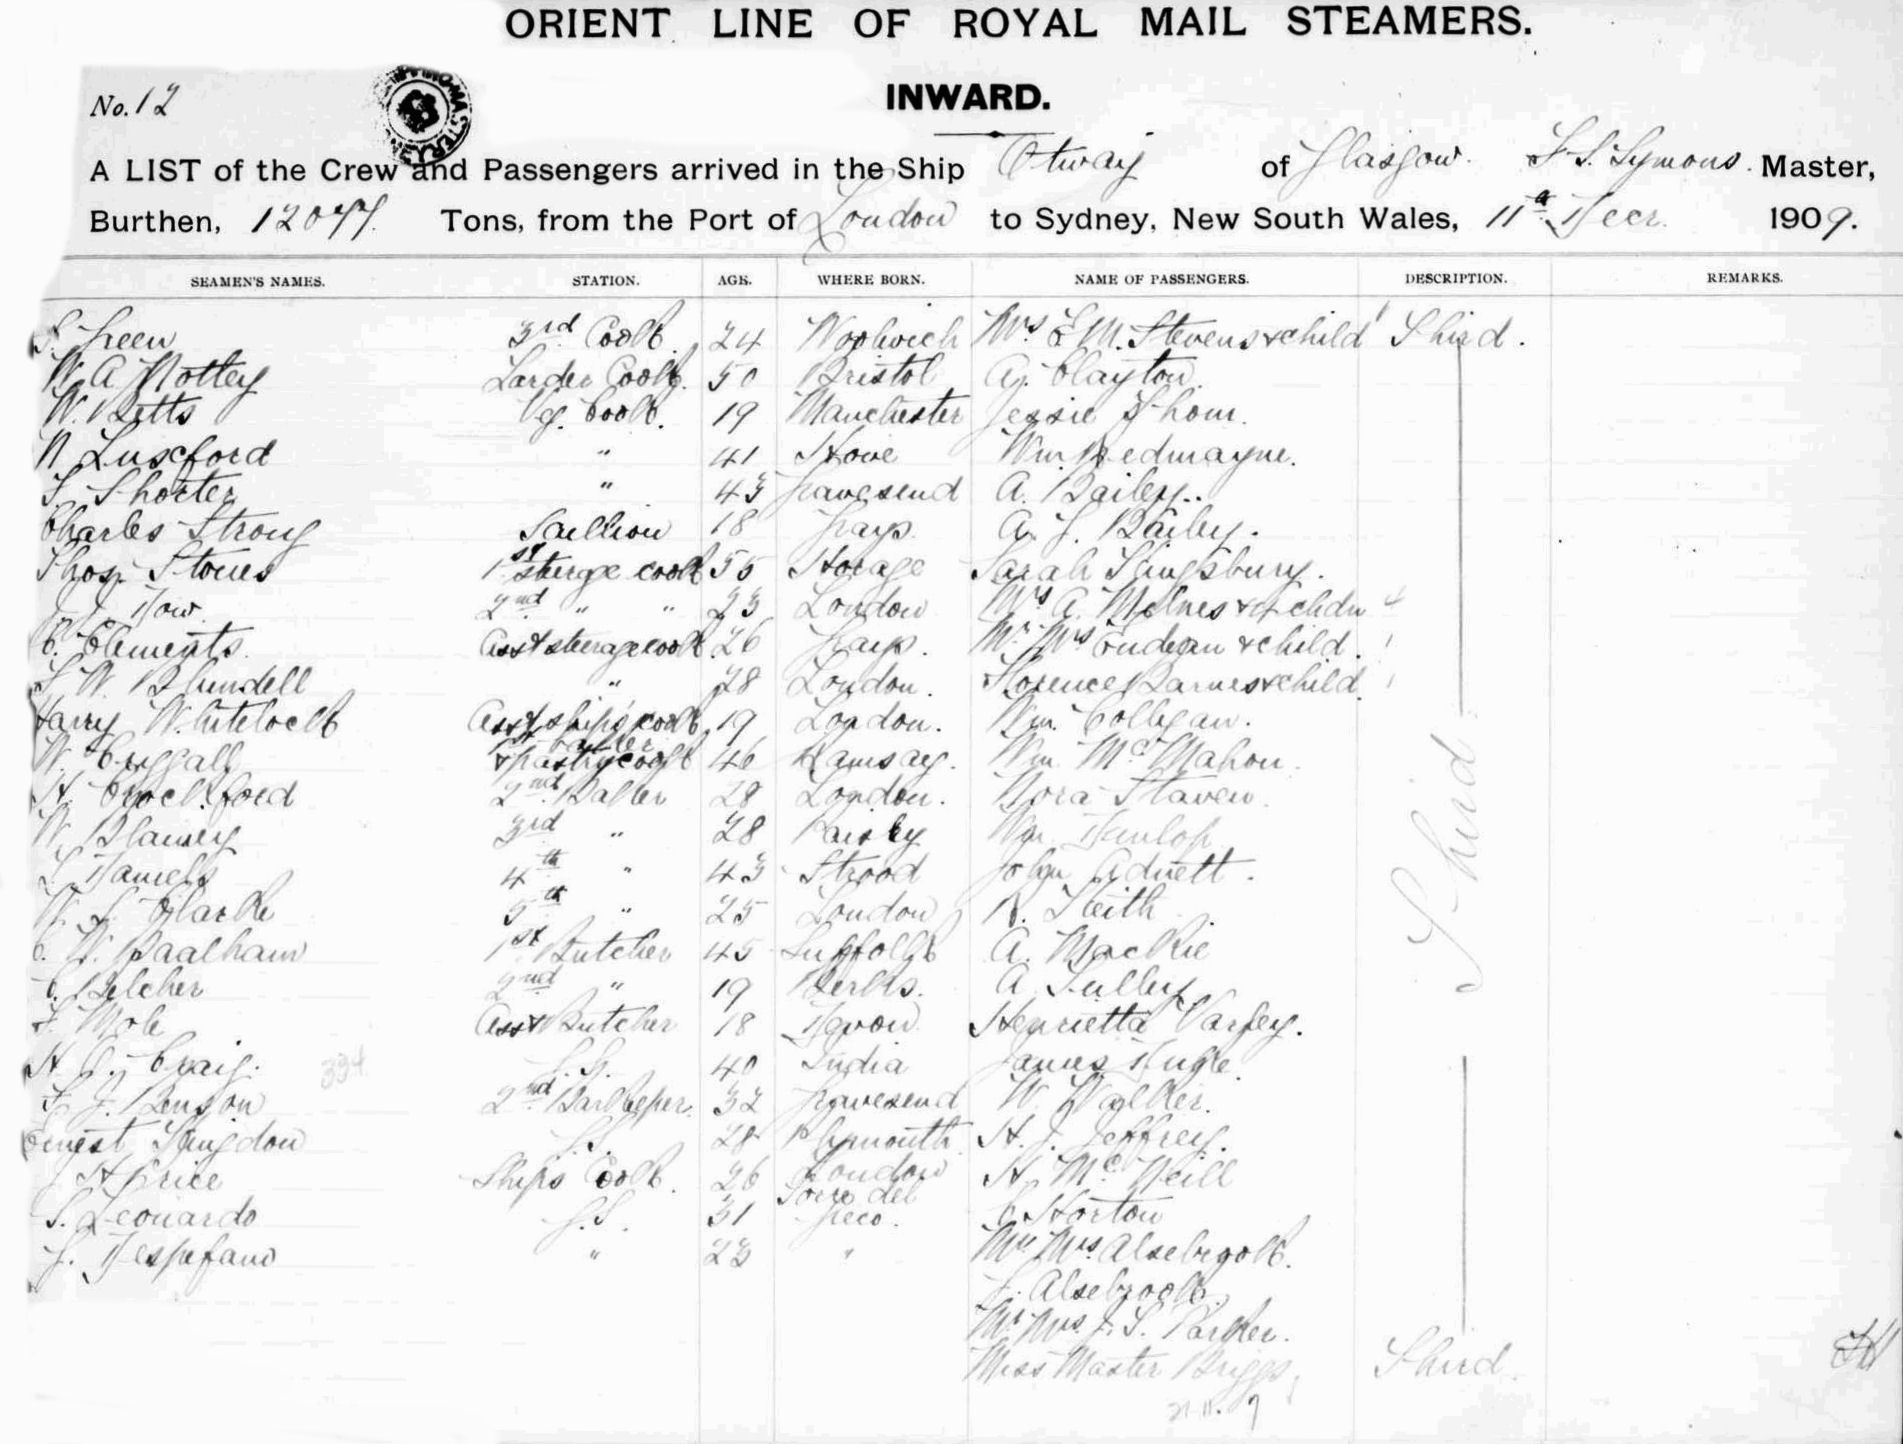 ORIENT LINE OF ROYAL MAIL STEAMERS.
INWARD.
No. 12
A LIST of the Crew and Passengers arrived in the Ship Otway of Glasgow. Symons. Master,
Burthen, 12077. Tons, from the Port of London to Sydney, New South Wales, 11th Decr. 1909.
SEAMEN'S NAMES. STATION. AGE. WHERE BORN. NAME OF PASSENGERS. DESCRIPTION. REMARKS.
Green 3rd Cook. 24 Woolwich Mrs E. M. Stevens & child 1 Third.
W. A. Nottey Larder Cook. 50 Bristol A. Clayton.
W. Betts Veg. Cook. 19 Manchester Jessie Thom.
Luxford " 41 Hove Wm. Redmayne.
Shorter " 43 Gravesend A. Bailey.
Charles Strong Scullion 18 Grays. A. J. Bailey.
Thos. Stones 1st steerge cook 55 Sarah Kingsbury.
Dow. 2nd " " 23 London Mrs A. Milnes & 4 chdn 4
C. Clements. Asst steerage cook. 26 Grays. Mr Mrs Endean & child. 1
W. Blundell " 28 London. Florence Barnes & child. 1
Harry Whitelock Asst ships cook 19 London. Wm. Colligan.
W. 1st baker & pastrycook 46 Ramsay. Wm. McMahon.
H. Crockford 2nd Baker 28 London. Nora Staven.
W. Blamey 3rd " 28 Paisley Wm. Dunlop
Daniels 4th " 43 Strood John Adnett.
W. Clarke 5th " 25 London R. Keith.
C. W. Baalham 1st Butcher 45 Suffolk A. Mackie
C. Belcher 2nd " 19 Berks. A Tulley
F. Mole Asst Butcher 18 Devon. Henrietta Varley.
H. Craig. 394 40 India James
F. J. Benson 2nd Barkeeper. 32 Gravesend W. Walker.
Ernest Kingdon 28 Plymouth. H. J. Jeffrey.
Price Ships Cook. 26 London H. McNeill
Leonardo 31 Torre del Greco. C. Horton
" 23 " Mr. Mrs. Alsebrook.
J. Alsebrook.
Mr. Mrs. Parker.
Miss Master Briggs. Third.
Third